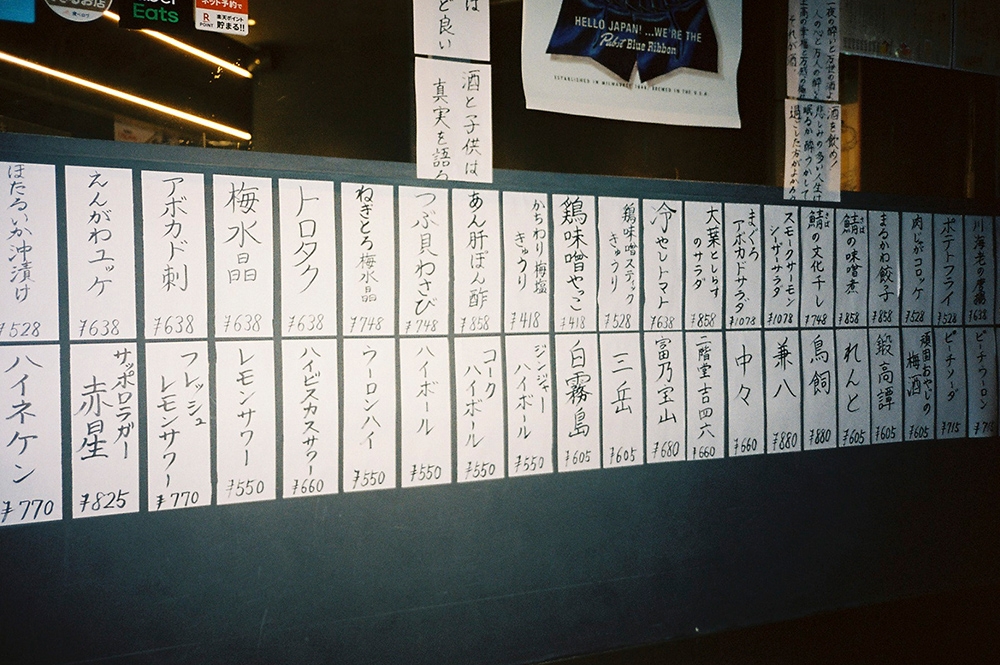 Uber
Eats
ネット予約で
楽天ポイント
貯まる!!
R
POINT
HELLO JAPAN! ...WE'RE THE
Pabst Blue Ribbon
ESTABLISHED IN MILWAUKEE 1844. BREWED IN THE U.S.A.
ど良い
酒と子供は
真実を語る
酒を飲め!
悲しみの多い人生は
眠るか酔つかして
ほたるいか沖漬け
¥528
えんがわユッケ
¥638
アボカド刺
¥638
梅水晶
¥638
トロタク
¥638
ねぎとろ梅水晶
¥748
つぶ貝わさび
¥748
あん肝ぽん酢
¥858
かちわり梅塩
きゅうり
¥418
鶏味噌やっこ
¥418
鶏味噌スティック
きゅうり
¥528
冷やしトマト
¥638
大葉としらす
のサラダ
¥858
まぐろ
アボカドサラダ
¥1078
スモークサーモン
シーザーサラダ
¥1078
鯖の文化干し
さば
¥748
鯖の味噌煮
さば
¥858
まるかわ餃子
¥858
肉じゃがコロッケ
¥528
ポテトフライ
¥528
川海老の唐揚
¥638
ハイネケン
¥770
サッポロラガー
赤星
¥825
フレッシュ
レモンサワー
¥770
レモンサワー
¥550
ハイビスカスサワー
¥660
ウーロンハイ
¥550
ハイボール
¥550
コーク
ハイボール
¥550
ジンジャー
ハイボール
¥550
白霧島
¥605
三岳
¥605
富乃宝山
¥680
二階堂吉四六
¥660
中々
¥660
兼八
¥880
鳥飼
¥880
れんと
¥605
鍛高譚
¥605
頑固おやじの
梅酒
¥605
ピーチソーダ
¥715
ピーチウーロン